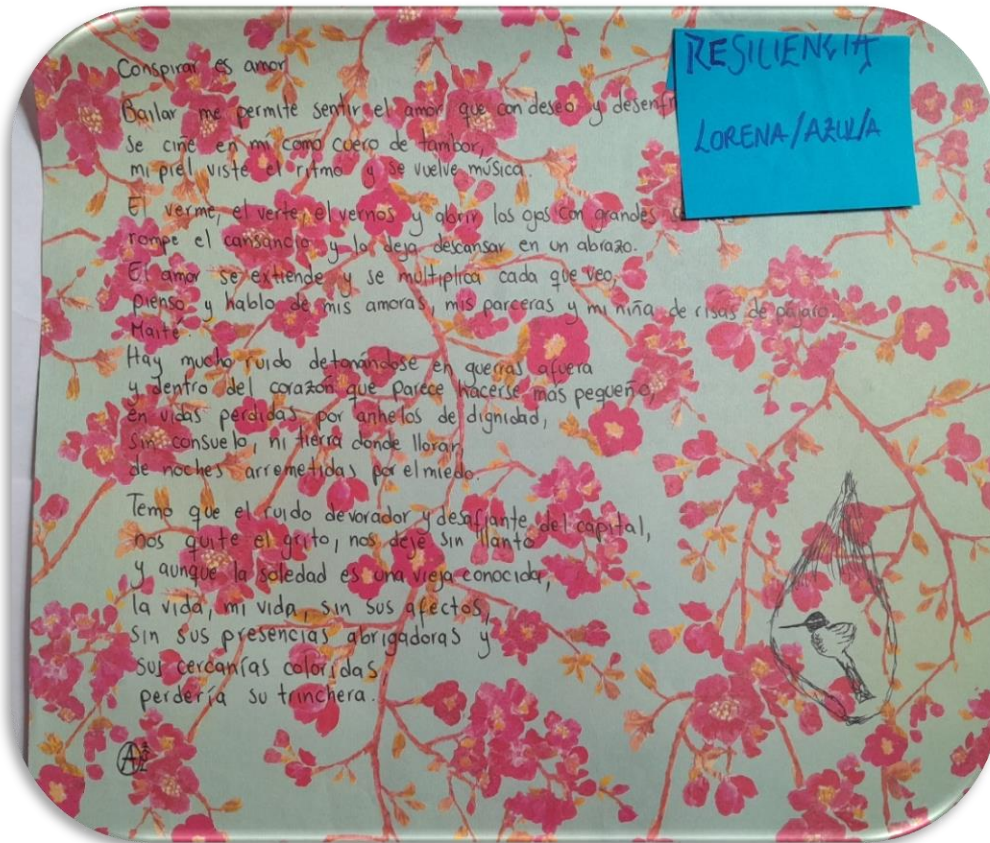 Conspirar es amor
Bailar me permite sentir el amor que con deseo y desenfr
se ciñe en mi como cuero de tambor,
mi piel viste el ritmo y se vuelve música.
El verme, el verte, el vernos y abrir los ojos con grandes
rompe el cansancio y lo deja descansar en un abrazo.
El amor se extiende y se multiplica cada que veo,
pienso y hablo de mis amoras, mis parceras y mi niña de risas de pájaro.
Maité
Hay mucho ruido detonándose en guerras afuera
y dentro del corazón que parece hacerse más pequeño,
en vidas perdidas por anhelos de dignidad,
sin consuelo, ni tierra donde llorar
de noches arremetidas por el miedo.
Temo que el ruido devorador y desafiante del capital,
nos quite el grito, nos deje sin llanto
y aunque la soledad es una vieja conocida,
la vida, mi vida, sin sus afectos,
sin sus presencias abrigadoras y
sus cercanías coloridas
perdería su trinchera.
RESILIENCIA
LORENA/AZUL/A